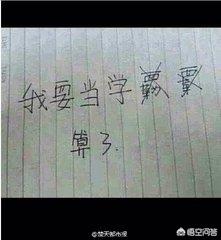 我要当学
算了.
@楚天都市报
悟空问答